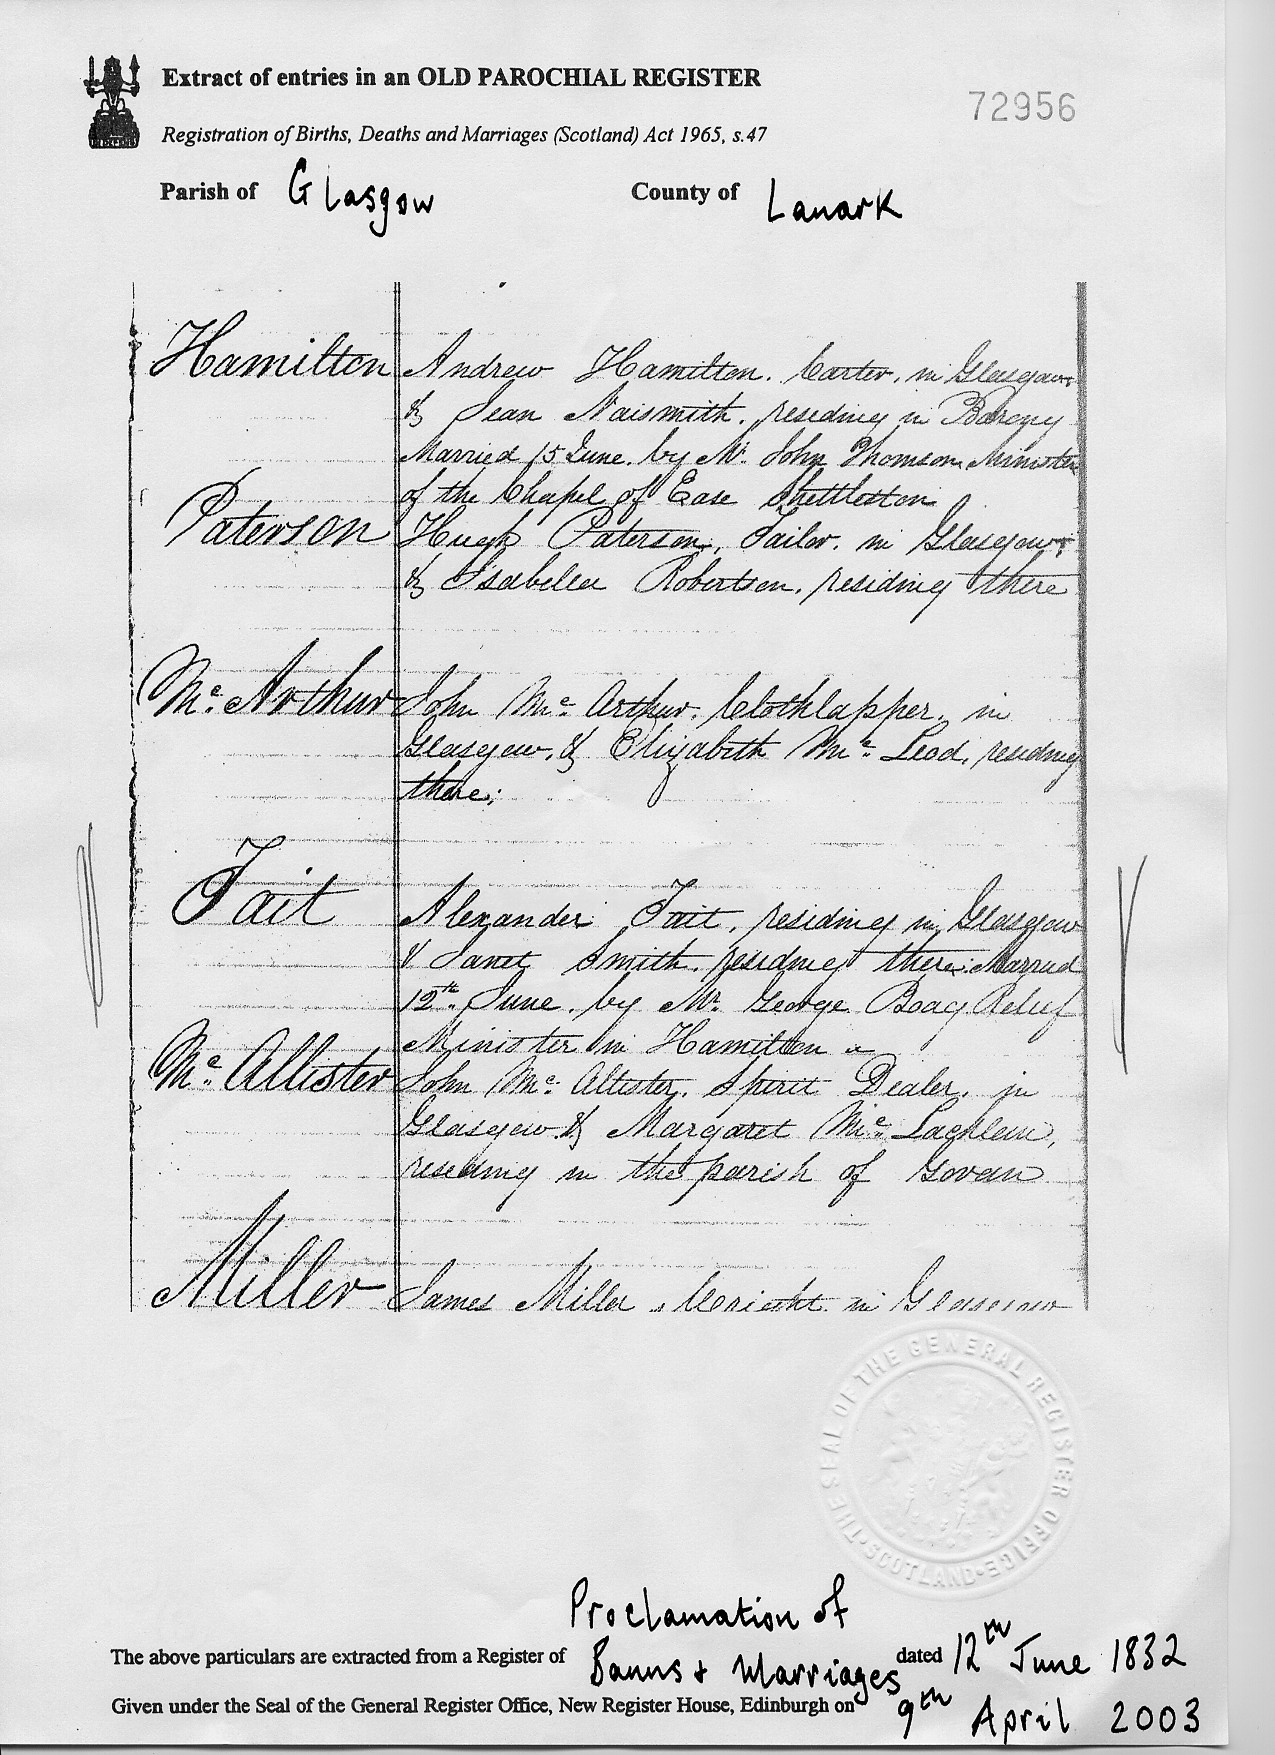 Extract of entries in an OLD PAROCHIAL REGISTER
72956
Registration of Births, Deaths and Marriages (Scotland) Act 1965, s.47
Parish of Glasgow County of Lanark
Hamilton Andrew Hamilton. Carter. in Glasgow.
& Jean Naismith. residing in Barony
Married 15 June. by Mr. John Thomson Minister
of the Chapel of Ease Shettleston
Paterson Hugh Paterson, Tailor. in Glasgow.
& Isabella Robertson. residing there
Mc. Arthur John Mc. Arthur. Clothlapper. in
Glasgow. & Elizabeth Mc. Leod. residing
there;
Tait Alexander Tait. residing in Glasgow
& Janet Smith. residing there. Married
12th June. by Mr. George Boag Relief
Minister in Hamilton
Mc. Allister John Mc. Allister. Spirit Dealer. in
Glasgow. & Margaret Mc. Lachlan,
residing in the parish of Govan
Miller James Miller. Wright. in Glasgow
THE SEAL OF THE GENERAL REGISTER OFFICE • SCOTLAND •
Proclamation of
The above particulars are extracted from a Register of Banns + Marriages dated 12th June 1832
Given under the Seal of the General Register Office, New Register House, Edinburgh on 9th April 2003